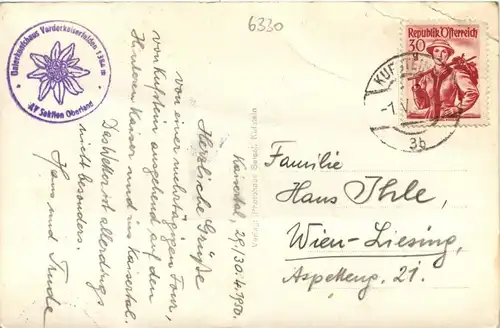 6330
Unterkunftshaus Vorderkaiserfelden 1384 m
AV Sektion Oberland
Kaisertal, 29./30.4.1950.
Herzliche Grüße
von einer mehrtägigen Tour,
von Kufstein ausgehend, auf den
Hinteren Kaiser und ins Kaisertal.
Das Wetter ist allerdings
nicht besonders.
Hans und Trude
Republik Österreich
30
KUFSTEIN
3b
Familie
Hans Ihle,
Wien-Liesing,
Aspetteng. 21.